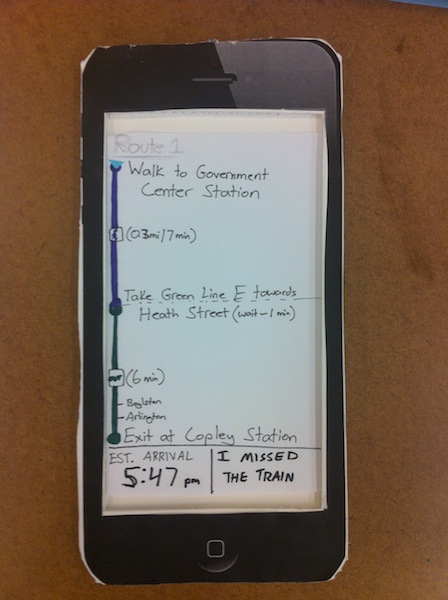 Route 1
Walk to Government
Center Station
(0.3mi/7min)
Take Green Line E towards
Heath Street (wait~1 min)
(6 min)
Boylston
Arlington
Exit at Copley Station
EST. ARRIVAL
5:47 pm
I MISSED
THE TRAIN